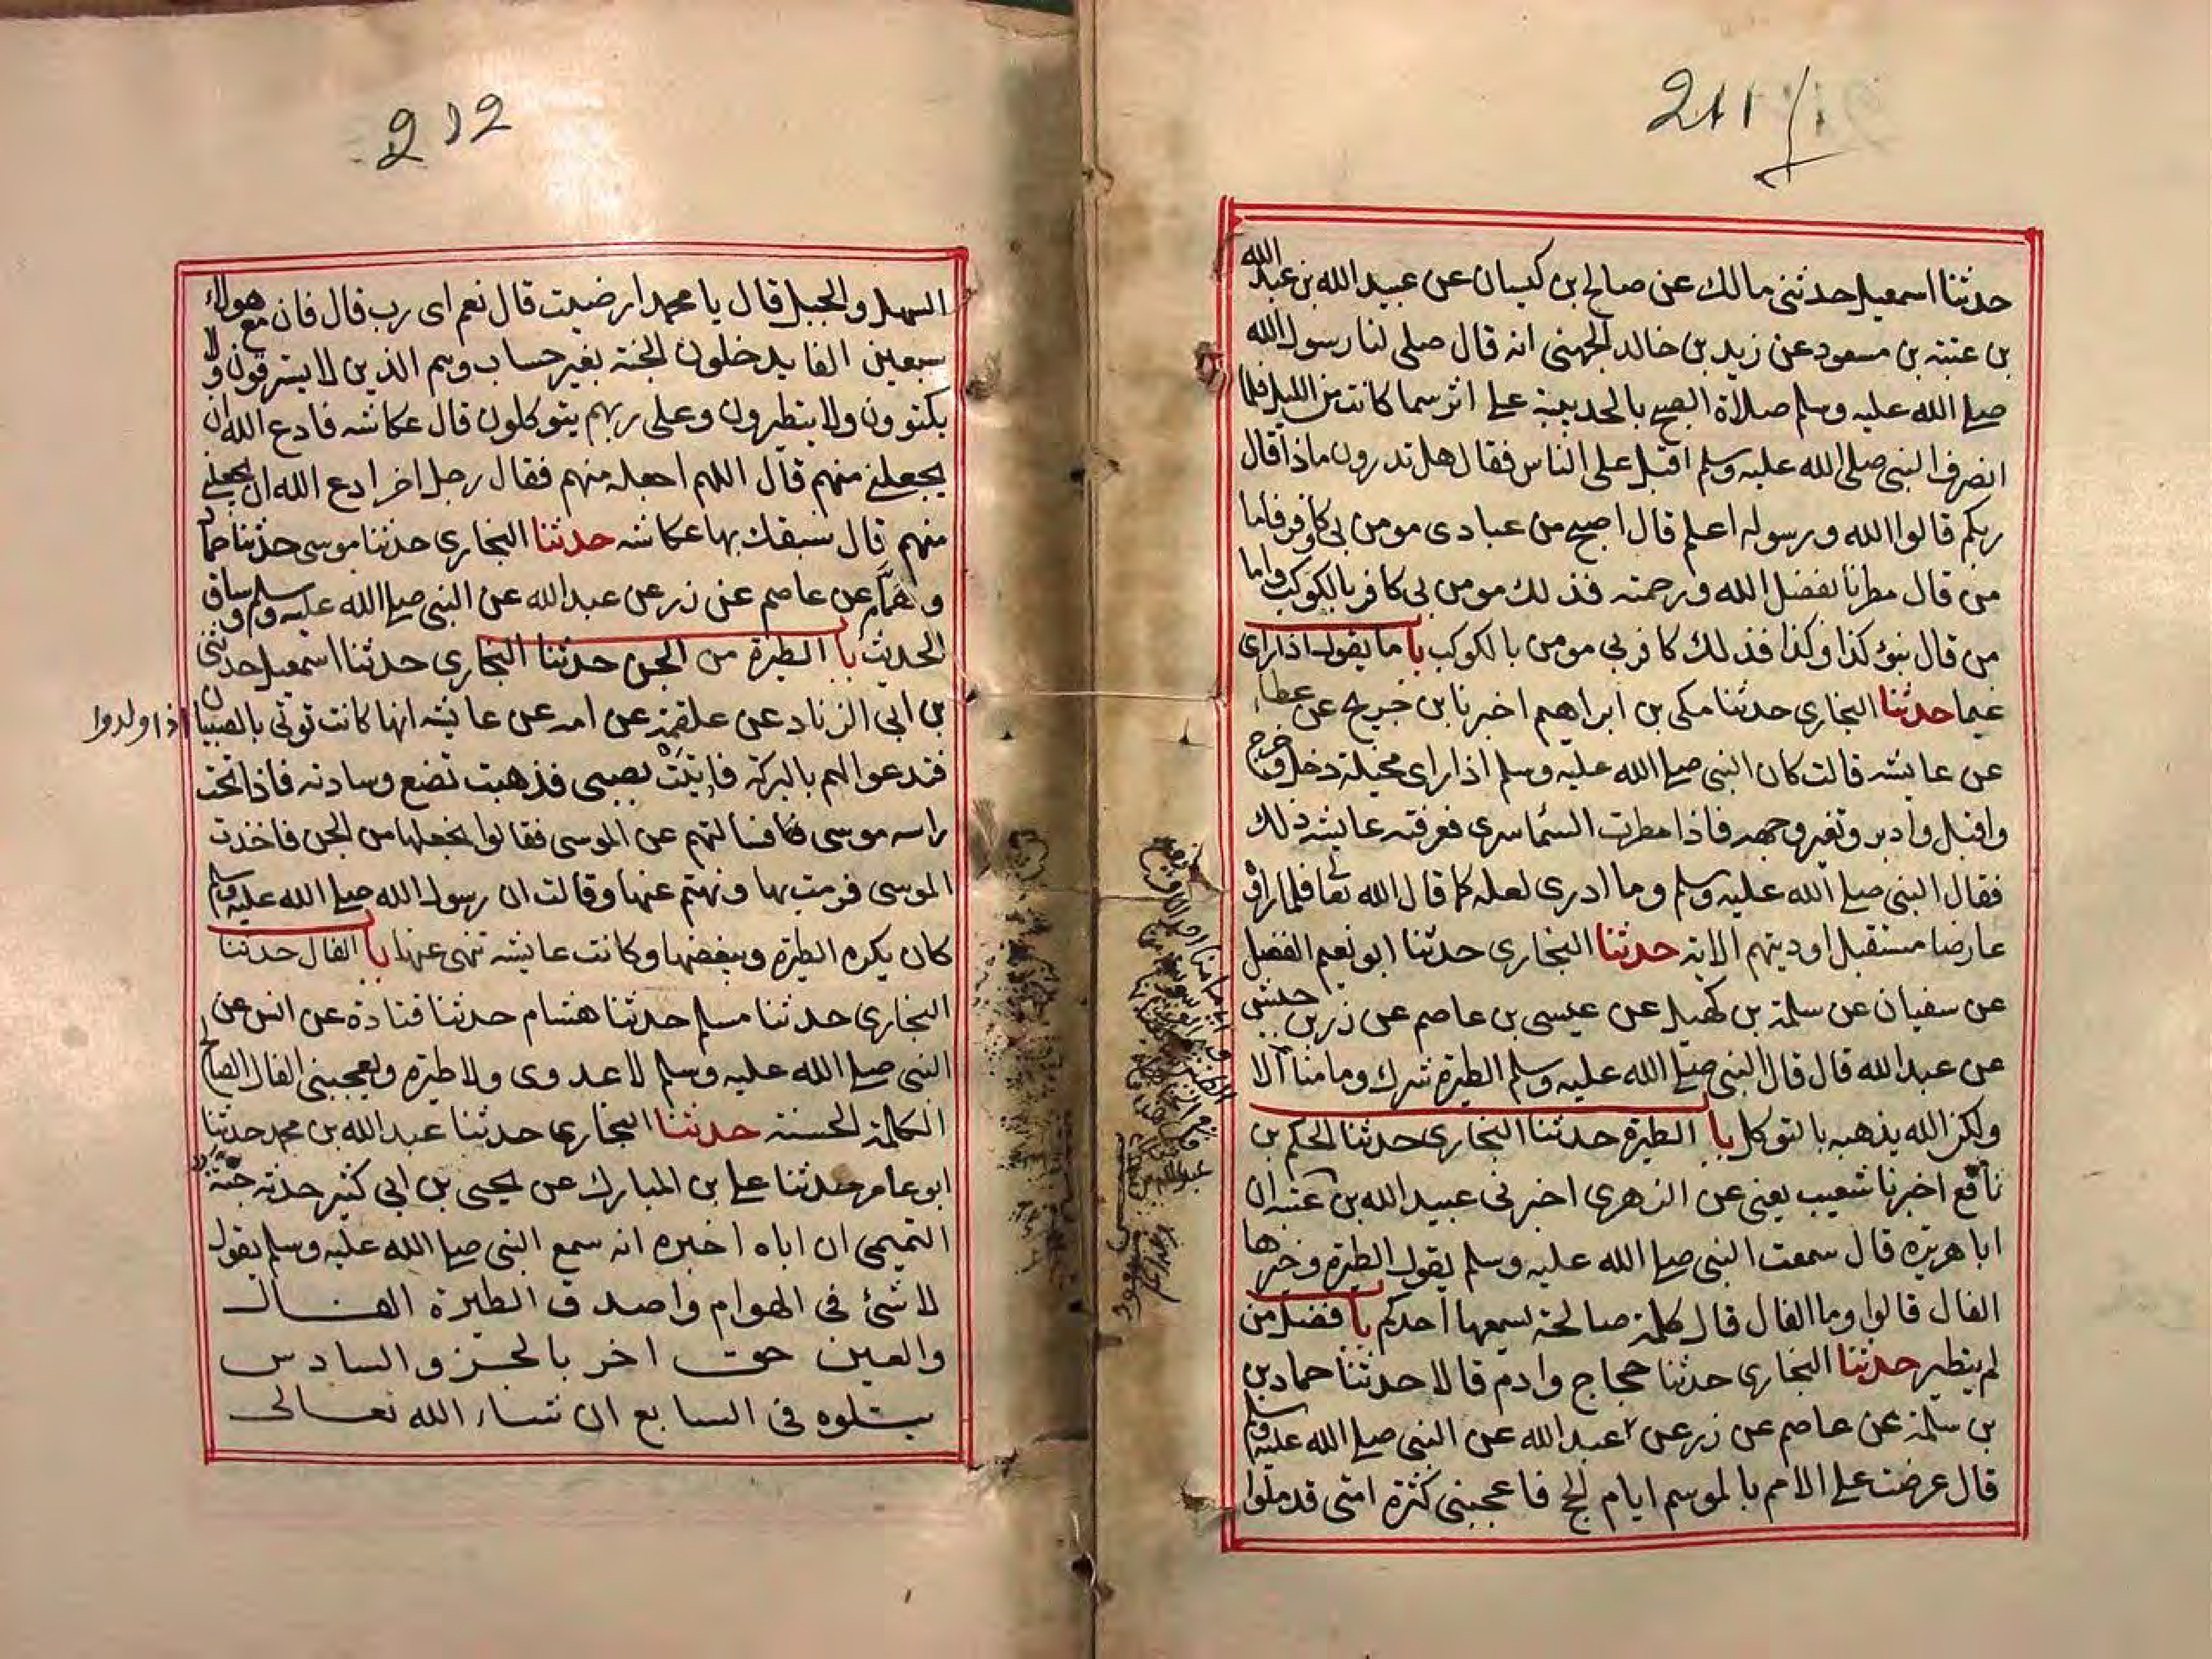 211
حدثنا اسمعيل حدثني مالك عن صالح بن كيسان عن عبيد الله بن عبد الله
بن عتبة بن مسعود عن زيد بن خالد الجهني انه قال صلى لنا رسول الله
صلى الله عليه وسلم صلاة الصبح بالحديبية على اثر سما كانت من الليل فلما
انصرف النبي صلى الله عليه وسلم اقبل على الناس فقال هل تدرون ماذا قال
ربكم قالوا الله ورسوله اعلم قال اصبح من عبادى مومن بي وكافر فاما
من قال مطرنا بفضل الله ورحمته فذلك مومن بي كافر بالكوكب واما
من قال بنوء كذا وكذا فذلك كافر بي مومن بالكوكب با ما يقول اذا راى
غيما حدثنا البخارى حدثنا مكى بن ابراهيم اخبرنا بن جريج عن عطاء
عن عايشه قالت كان النبي صلى الله عليه وسلم اذا راى مخيلة دخل وخرج
واقبل وادبر وتغير وجهه فاذا مطرت السما سرى فعرفته عايشه ذلك
فقال النبي صلى الله عليه وسلم وما ادرى لعله كما قال الله تعا فلما راوه
عارضا مستقبل اوديتهم الاية حدثنا البخارى حدثنا ابو نعيم الفضل
عن سفيان عن سلمة بن كهيل عن عيسى بن عاصم عن زر بن حبيش
عن عبد الله قال قال النبي صلى الله عليه وسلم الطيرة شرك وما منا الا
ولكن الله يذهبه بالتوكل با الطيرة حدثنا البخارى حدثنا الحكم بن
نافع اخبرنا شعيب يعنى عن الزهرى اخبرنى عبيد الله بن عتبه ان
ابا هريرة قال سمعت النبي صلى الله عليه وسلم يقول الطيرة وخيرها
الفال قالوا وما الفال قال كلمة صالحة يسمعها احدكم با فضل من
لم يتطير حدثنا البخارى حدثنا حجاج وادم قالا حدثنا حماد بن
بن سلمة عن عاصم عن زر عن عبد الله عن النبي صلى الله عليه وسلم
قال عرضت على الامم بالموسم ايام الحج فاعجبنى كثرة امتى قد ملوا
212
السهل والجبل قال يا محمد ارضيت قال نعم اى رب قال فان مع هولاء
سبعين الفا يدخلون الجنة بغير حساب وهم الذين لا يسترقون ولا
يكتوون ولا يتطيرون وعلى ربهم يتوكلون قال عكاشه فادع الله ان
يجعلنى منهم قال اللهم اجعله منهم فقال رجل اخر ادع الله ان يجعلنى
منهم قال سبقك بها عكاشه حدثنا البخارى حدثنا موسى حدثنا حماد
وهمام عن عاصم عن زر عن عبد الله عن النبي صلى الله عليه وسلم وساق
الحديث با الطيرة من الجن حدثنا البخارى حدثنا اسمعيل حدثنى
بن ابي الزناد عن علقمة عن امه عن عايشه انها كانت توتى بالصبيان
اذا ولدوا
فتدعوا لهم بالبركة فاتيت بصبى فذهبت تضع وسادته فاذا تحت
راسه موسى فسالتهم عن الموسى فقالوا نجعلها من الجن فاخذت
الموسى فرمت بها ونهتهم عنها وقالت ان رسول الله صلى الله عليه وسلم
كان يكره الطيرة ويبغضها وكانت عايشه تنهى عنها با الفال حدثنا
البخارى حدثنا مسلم حدثنا هشام حدثنا قتادة عن انس عن
النبى صلى الله عليه وسلم لا عدوى ولا طيرة ويعجبنى الفال الصالح
الكلمة الحسنة حدثنا البخارى حدثنا عبد الله بن محمد حدثنا
ابو عامر حدثنا على بن المبارك عن يحيى بن ابى كثير حدثه حية
التميمى ان اباه اخبره انه سمع النبى صلى الله عليه وسلم يقول
لا شئ فى الهوام واصدق الطيرة الفال
والعين حق اخر بالجزو السادس
يتلوه فى السابع ان شاء الله تعالى